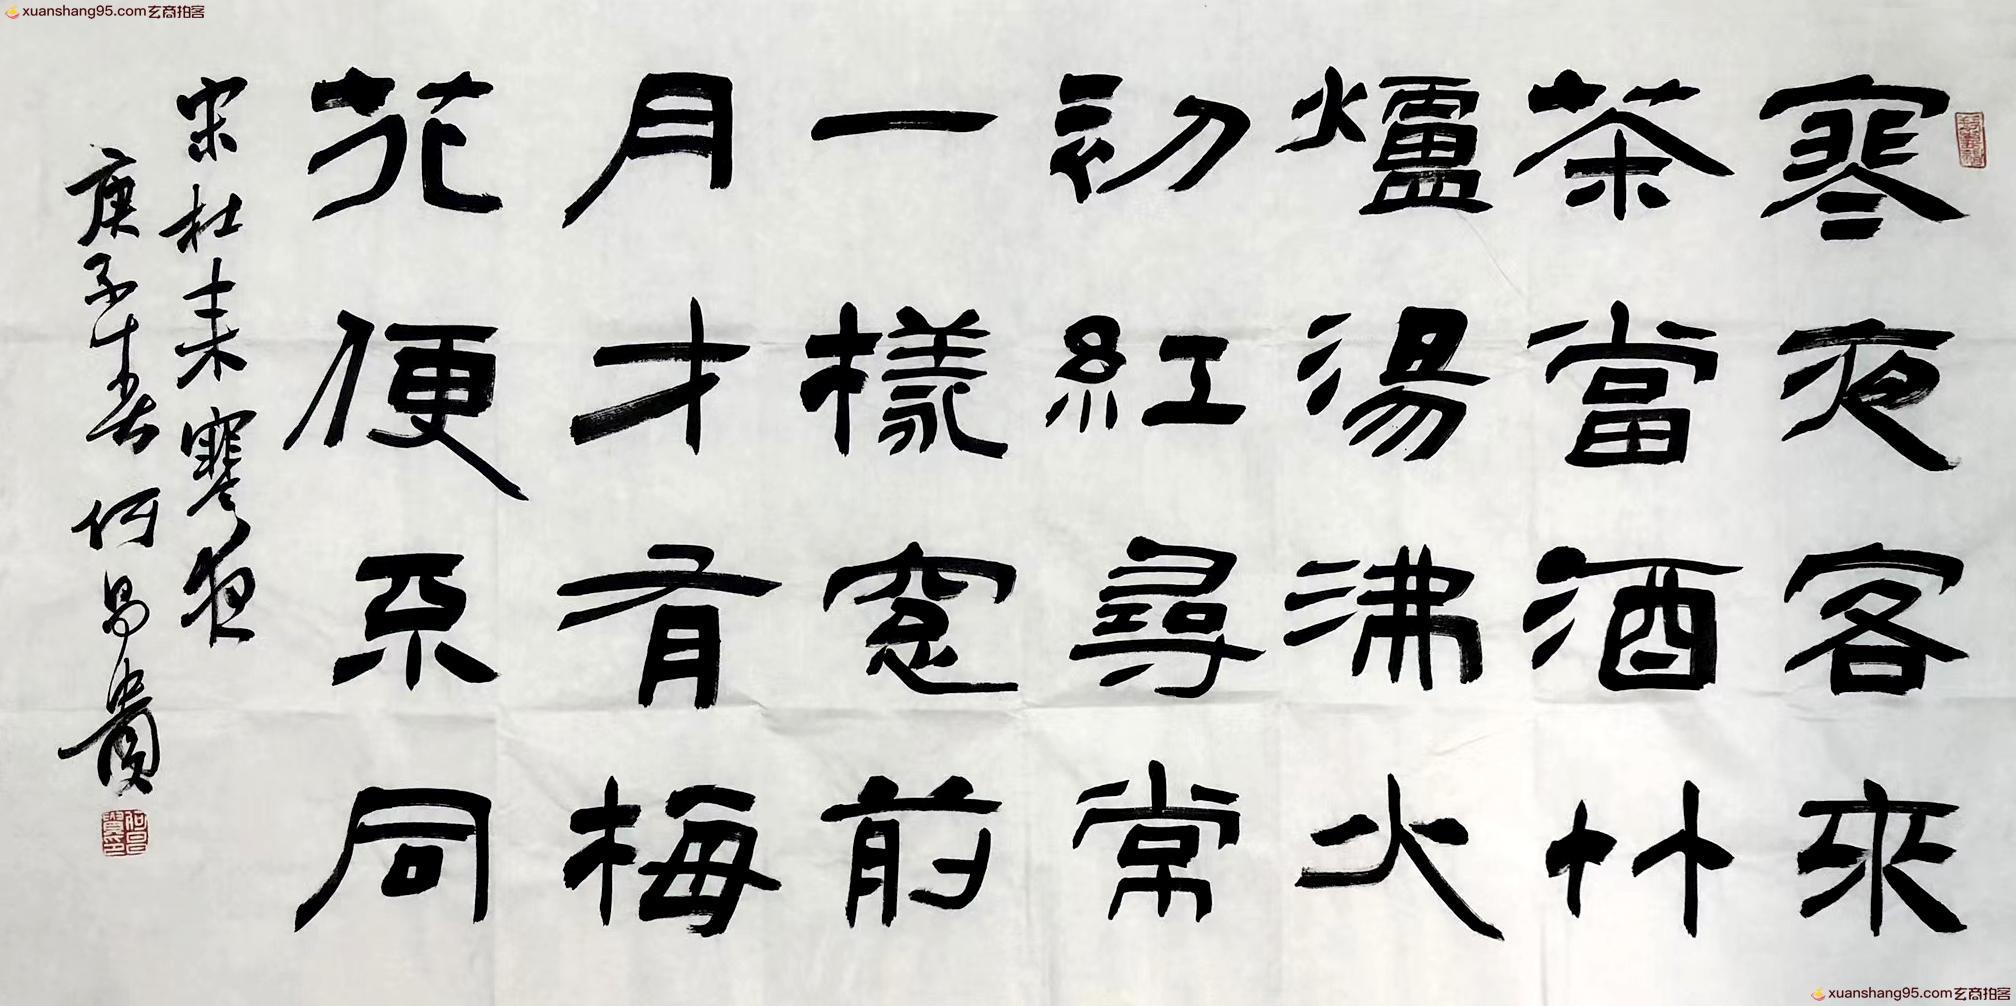 xuanshang95.com玄商拍客
寒夜客來
茶當酒竹
爐湯沸火
初紅尋常
一樣窓前
月才有梅
花便不同
宋杜耒寒夜
庚子年 何昌貴
xuanshang95.com玄商拍客